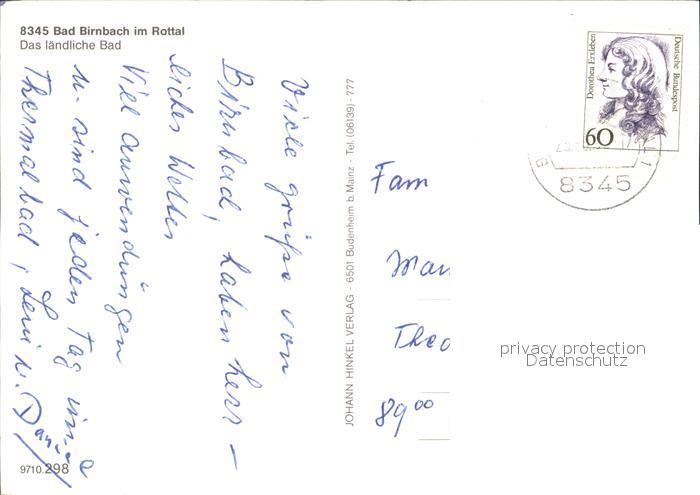 8345 Bad Birnbach im Rottal
Das ländliche Bad
Viele grüße von
Birnbad, haben herr-
liches Wetter
Viel anwendüngen
u. sind jeden Tag im
Thermalbad, Leni u.
9710.298
JOHANN HINKEL VERLAG · 6501 Budenheim b. Mainz · Tel. (06139) · 777
Dorothea Erxleben
Deutsche Bundespost
60
8345
Fam
Man
Theo
89⁰⁰
privacy protection
Datenschutz